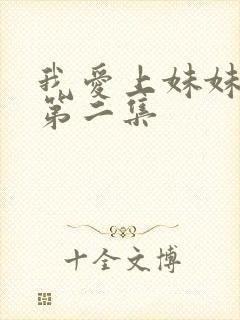 我爱上妹妹
第二集
十全文博